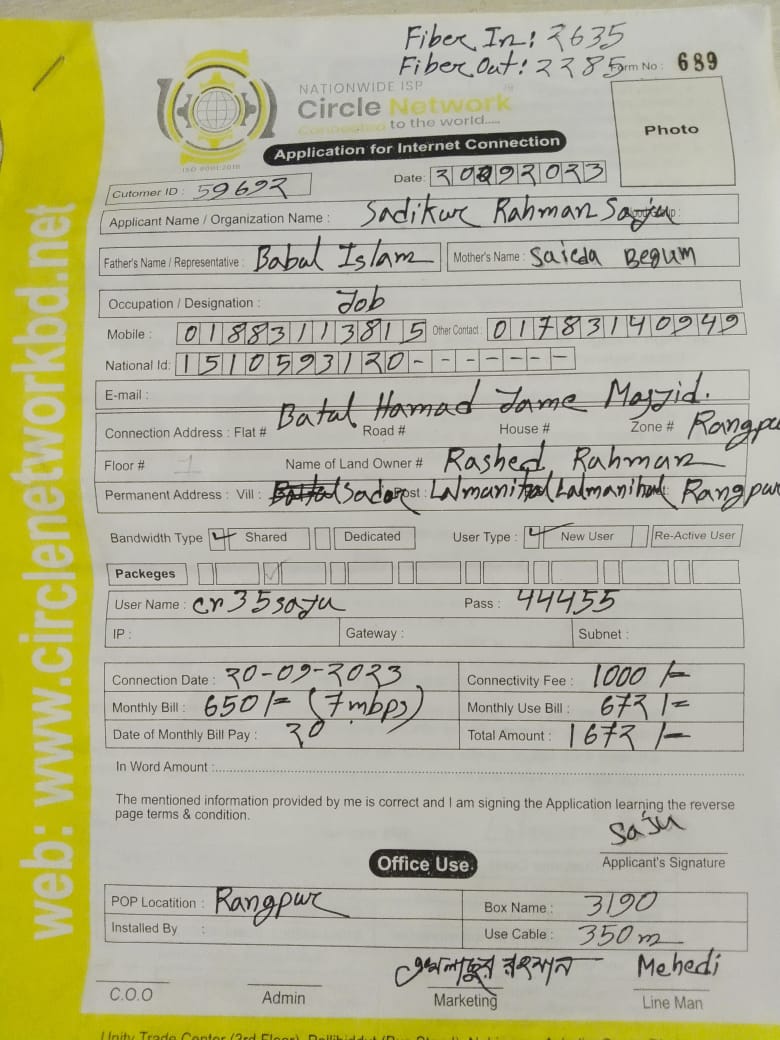 Fiber In: 2635
Fiber Out: 2285
Form No: 689
NATIONWIDE ISP
Circle Network
Connected to the world.....
ISO 9001:2015
Application for Internet Connection
Photo
Cutomer ID: 59692
Date: 20092023
Applicant Name / Organization Name : Sadikur Rahman Saju
Father's Name / Representative : Babul Islam Mother's Name : Saieda Begum
Occupation / Designation : Job
Mobile : 01883113815 Other Contact : 01783140949
National Id: 1510593120-------
E-mail :
Batul Hamad Jame Masjid.
Connection Address : Flat # Road # House # Zone # Rangpur
Floor # 1 Name of Land Owner # Rashed Rahman
Permanent Address : Vill : Sador Post : Lalmonihat Lalmanihat Rangpur
Bandwidth Type ✓ Shared Dedicated User Type : ✓ New User Re-Active User
Packeges
User Name : cn35saju Pass : 44455
IP : Gateway : Subnet :
Connection Date : 20-09-2023 Connectivity Fee : 1000 /-
Monthly Bill : 650/= (7mbps) Monthly Use Bill : 672 /=
Date of Monthly Bill Pay : 20 Total Amount : 1672 /-
In Word Amount :
The mentioned information provided by me is correct and I am signing the Application learning the reverse
page terms & condition.
Saju
Applicant's Signature
Office Use
POP Locatition : Rangpur Box Name : 3190
Installed By : Use Cable : 350m
রহমান Mehedi
C.O.O Admin Marketing Line Man
web: www.circlenetworkbd.net